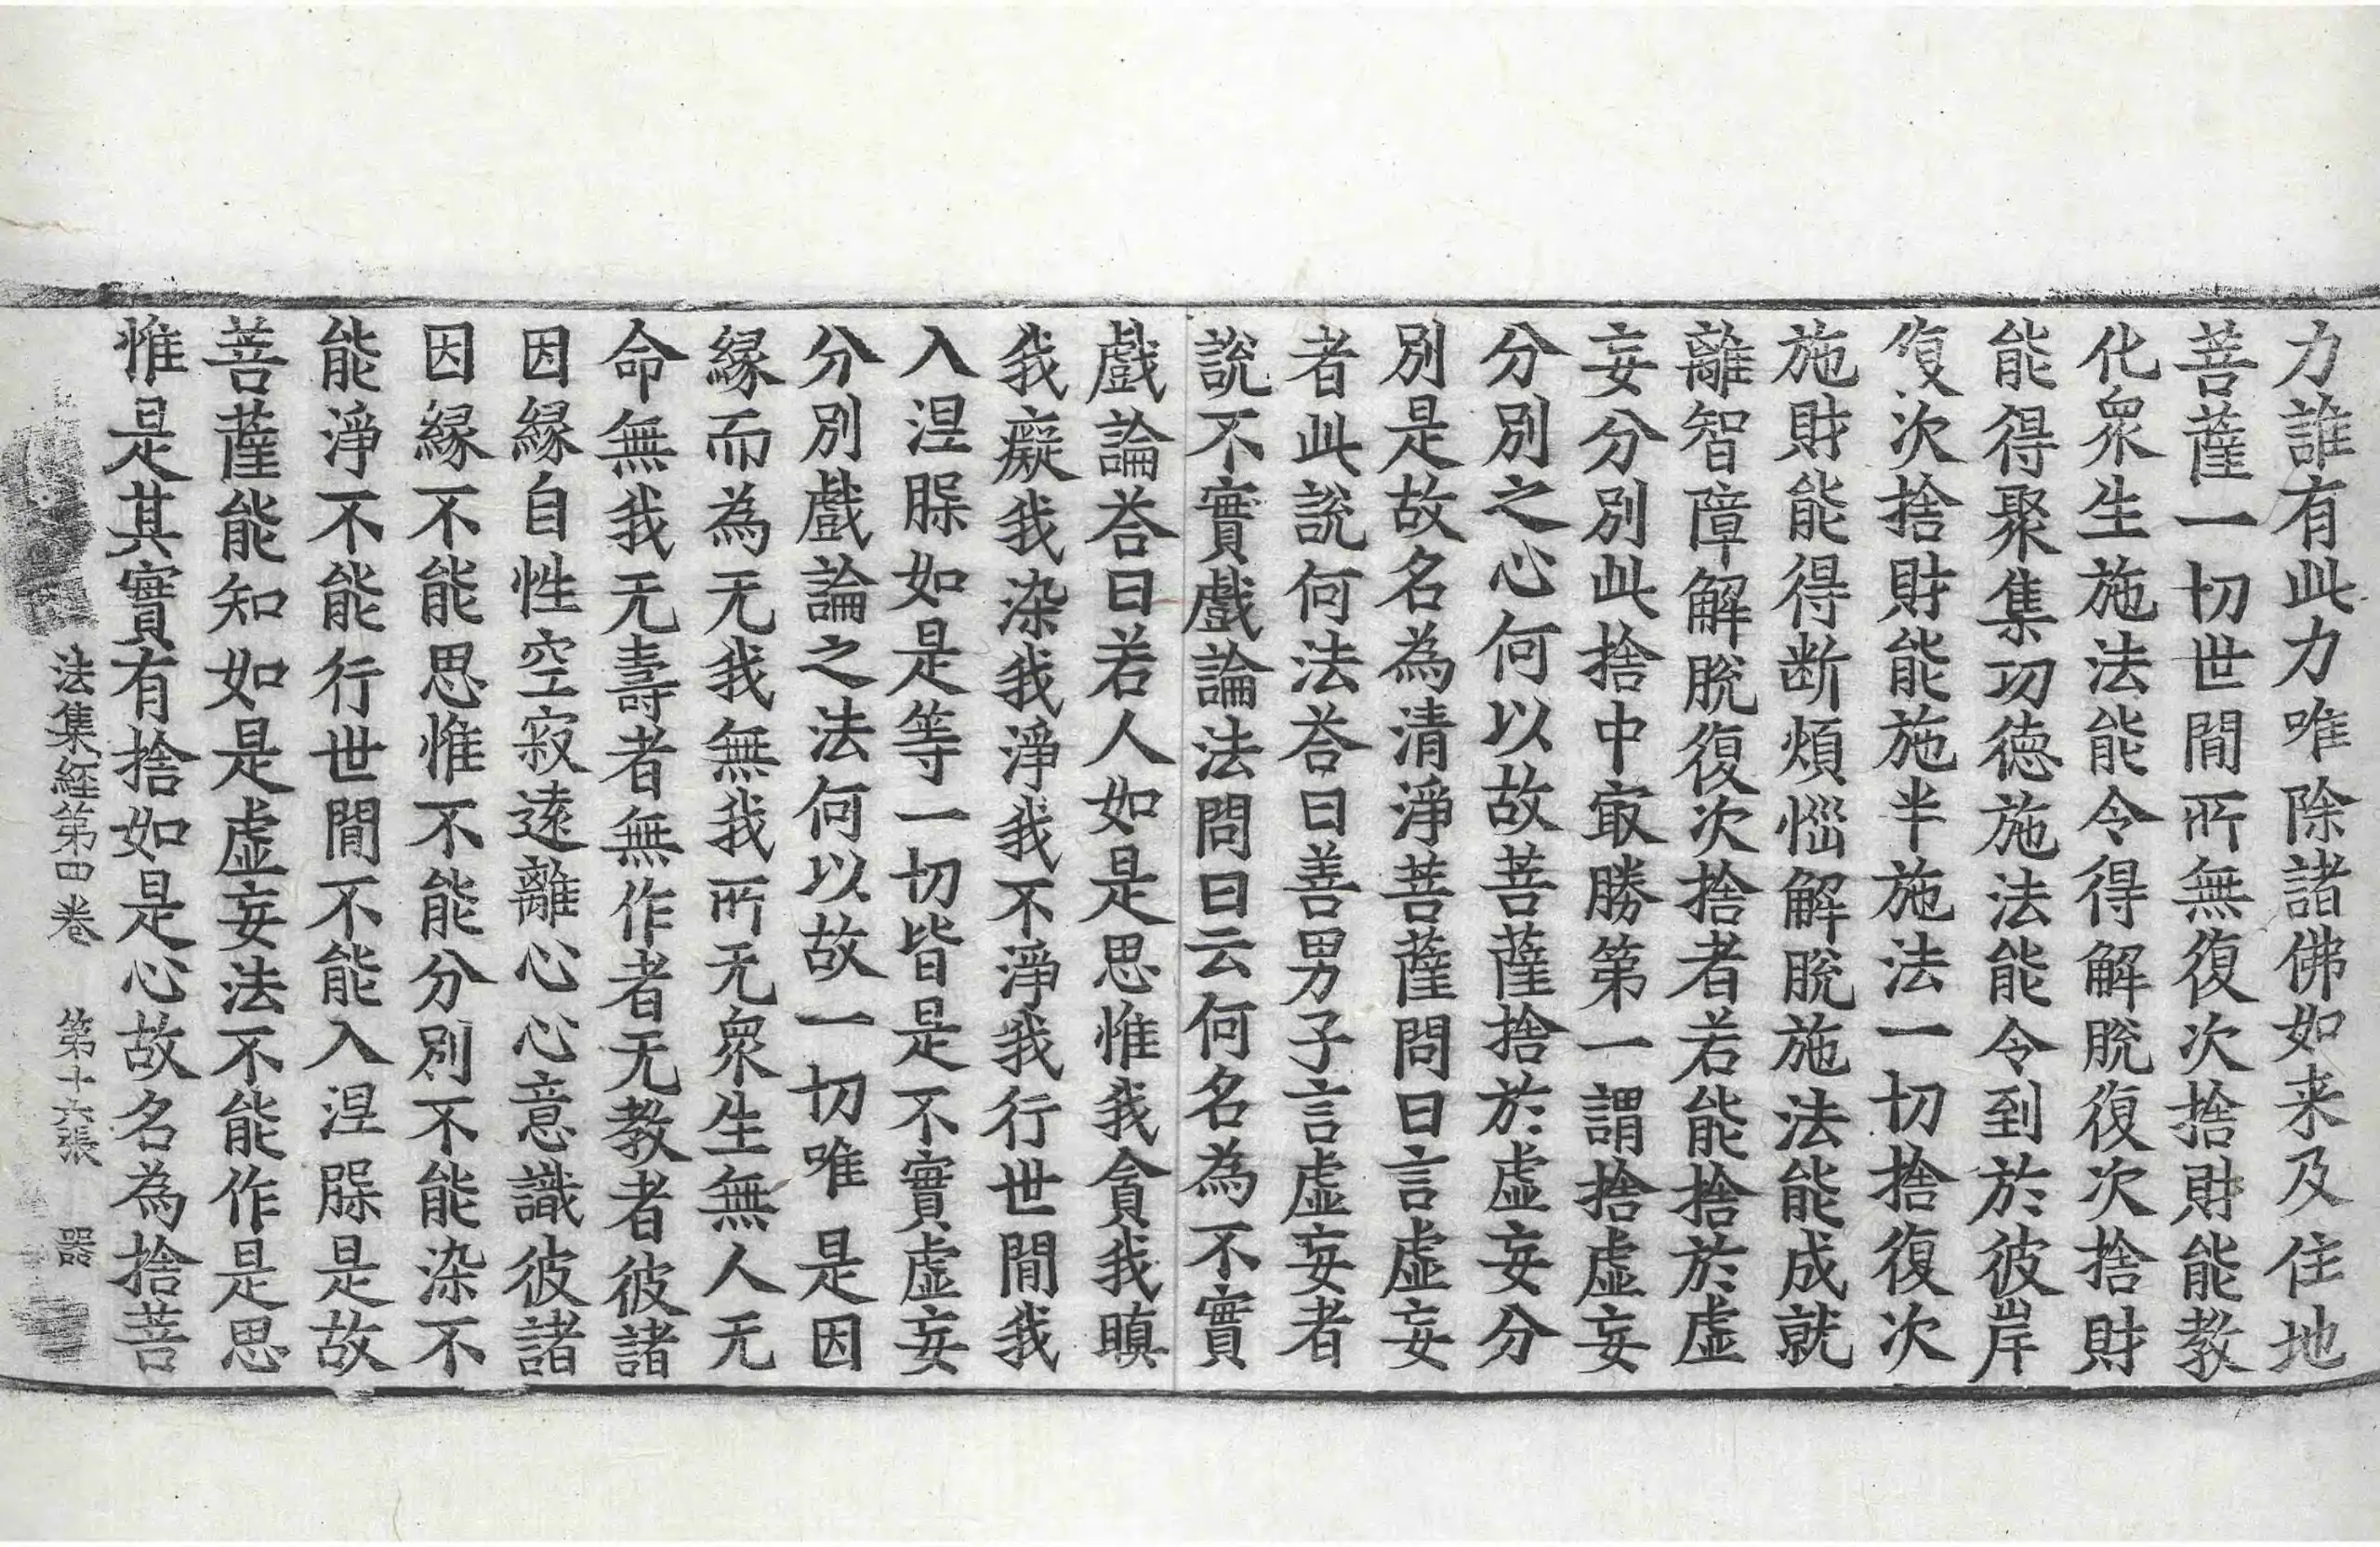 力誰有此力唯除諸佛如来及住地
菩薩一切世間所無復次捨財能教
化衆生施法能令得解脫復次捨財
能得聚集功德施法能令到於彼岸
復次捨財能施半施法一切捨復次
施財能得断煩惱解脫施法能成就
離智障解脫復次捨者若能捨於虛
妄分別此捨中㝡勝第一謂捨虛妄
分別之心何以故菩薩捨於虛妄分
別是故名為清淨菩薩問曰言虛妄
者此說何法荅曰善男子言虛妄者
說不實戲論法問曰云何名為不實
戲論荅曰若人如是思惟我貪我瞋
我癡我染我淨我不淨我行世間我
入涅槃如是等一切皆是不實虛妄
分別戲論之法何以故一切唯是因
緣而為无我無我所无衆生無人无
命無我无壽者無作者无教者彼諸
因緣自性空寂遠離心心意識彼諸
因緣不能思惟不能分別不能染不
能淨不能行世間不能入涅槃是故
菩薩能知如是虛妄法不能作是思
惟是其實有捨如是心故名為捨菩
法集経第四卷 第十六張 器